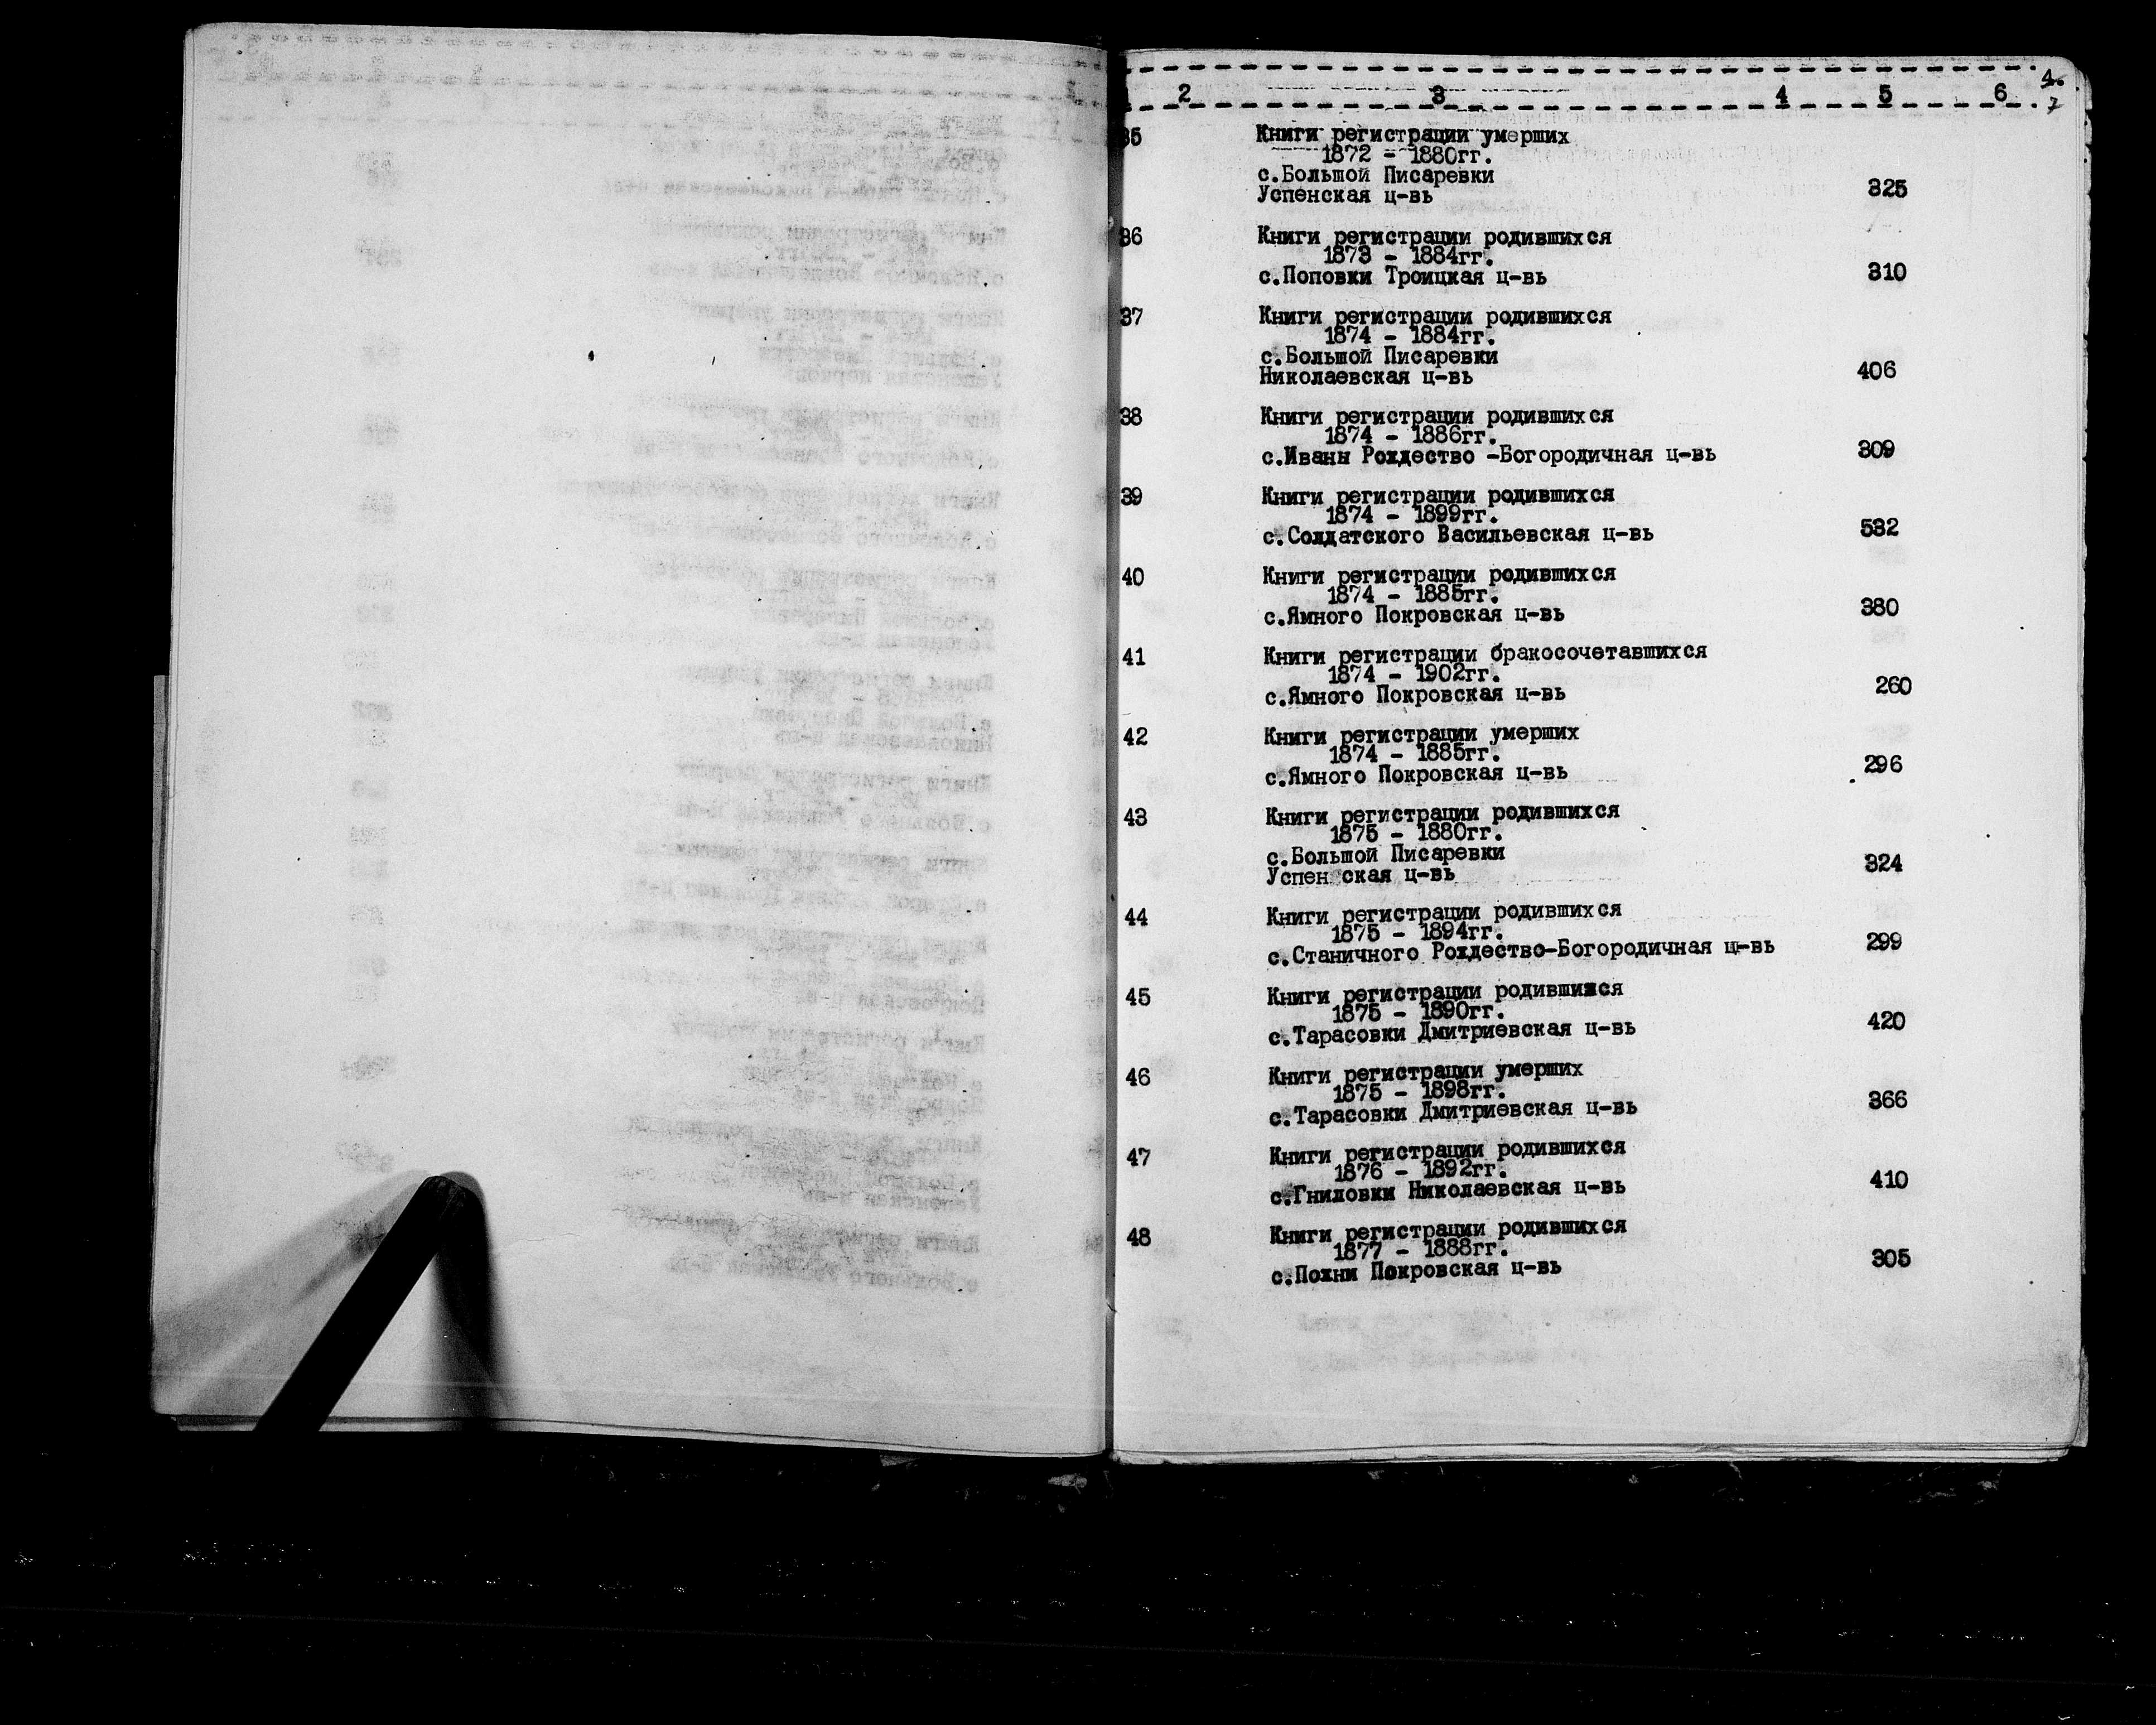 4.
2 3 4 5 6
7
35 Книги регистрации умерших
1872 - 1880гг.
с.Большой Писаревки
Успенская ц-вь 325
36 Книги регистрации родившихся
1873 - 1884гг.
с.Поповки Троицкая ц-вь 310
37 Книги регистрации родившихся
1874 - 1884гг.
с.Большой Писаревки
Николаевская ц-вь 406
38 Книги регистрации родившихся
1874 - 1886гг.
с.Иваны Рождество -Богородичная ц-вь 309
39 Книги регистрации родившихся
1874 - 1899гг.
с.Солдатского Васильевская ц-вь 532
40 Книги регистрации родившихся
1874 - 1885гг.
с.Ямного Покровская ц-вь 380
41 Книги регистрации бракосочетавшихся
1874 - 1902гг.
с.Ямного Покровская ц-вь 260
42 Книги регистрации умерших
1874 - 1885гг.
с.Ямного Покровская ц-вь 296
43 Книги регистрации родившихся
1875 - 1880гг.
с.Большой Писаревки
Успен ская ц-вь 324
44 Книги регистрации родившихся
1875 - 1894гг.
с.Станичного Рождество-Богородичная ц-вь 299
45 Книги регистрации родившихся
1875 - 1890гг.
с.Тарасовки Дмитриевская ц-вь 420
46 Книги регистрации умерших
1875 - 1898гг.
с.Тарасовки Дмитриевская ц-вь 366
47 Книги регистрации родившихся
1876 - 1892гг.
с.Гниловки Николаевская ц-вь 410
48 Книги регистрации родившихся
1877 - 1888гг.
с.Пожни Покровская ц-вь 305